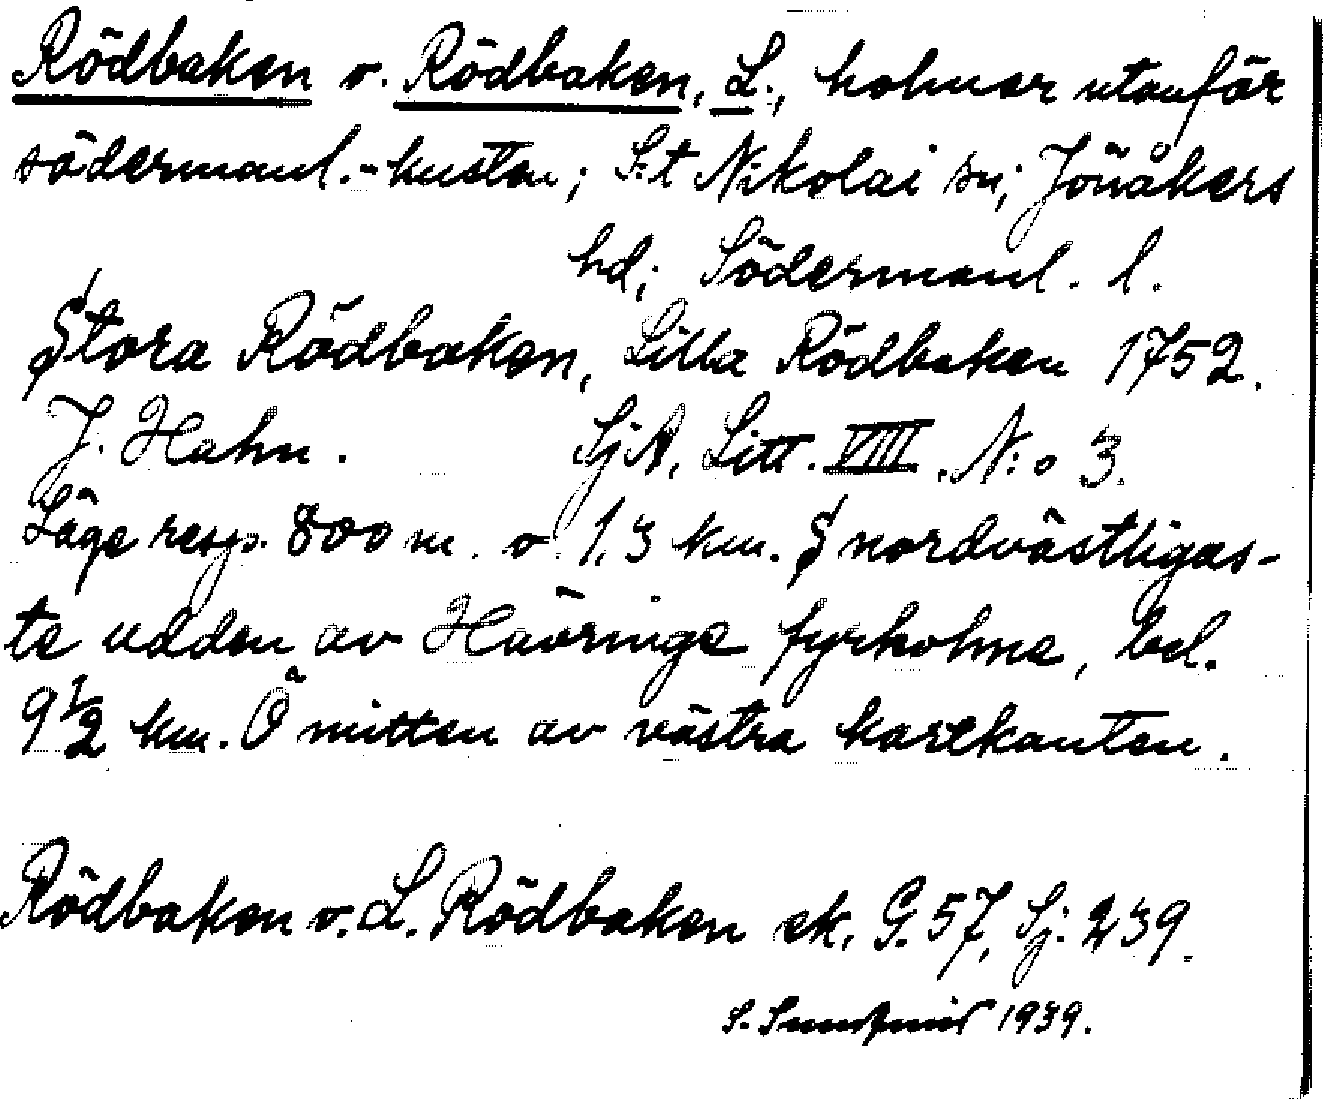 Rödbaken o. Rödbaken, L., holmar utanför
södermanl.-kusten; S:t Nikolai sn; Jönåkers
hd; Södermanl. l.
Stora Rödbaken, Lilla Rödbaken 1752.
J. Hahn. SjA, Litt. VIII. N:o 3.
Läge resp. 800 m. o. 1,3 km. S nordvästligas-
te udden av Hävringe fyrholme, bel.
9 1/2 km. Ö mitten av västra kartkanten.
Rödbaken o. L. Rödbaken ek. G. 57, Sj. 239.
S. 1939.